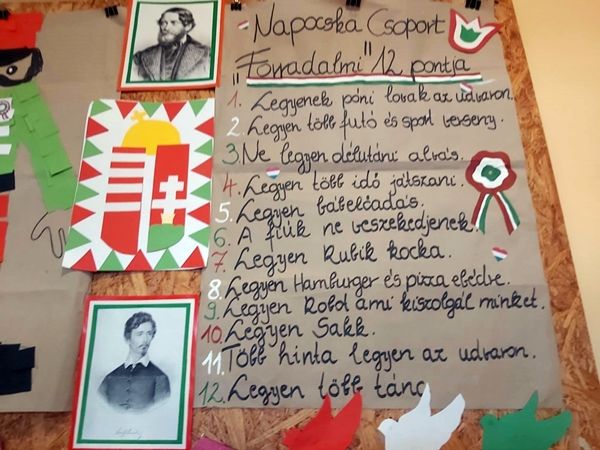 Napocska Csoport
"Forradalmi" 12 pontja
1. Legyenek póni lovak az udvaron.
2. Legyen több futó és sport verseny.
3. Ne legyen délutáni alvás.
4. Legyen több idő játszani.
5. Legyen bábelőadás.
6. A fiúk ne veszekedjenek.
7. Legyen Rubik kocka.
8. Legyen Hamburger és pizza ebédre.
9. Legyen Robot ami kiszolgál minket.
10. Legyen Sakk.
11. Több hinta legyen az udvaron.
12. Legyen több tánc